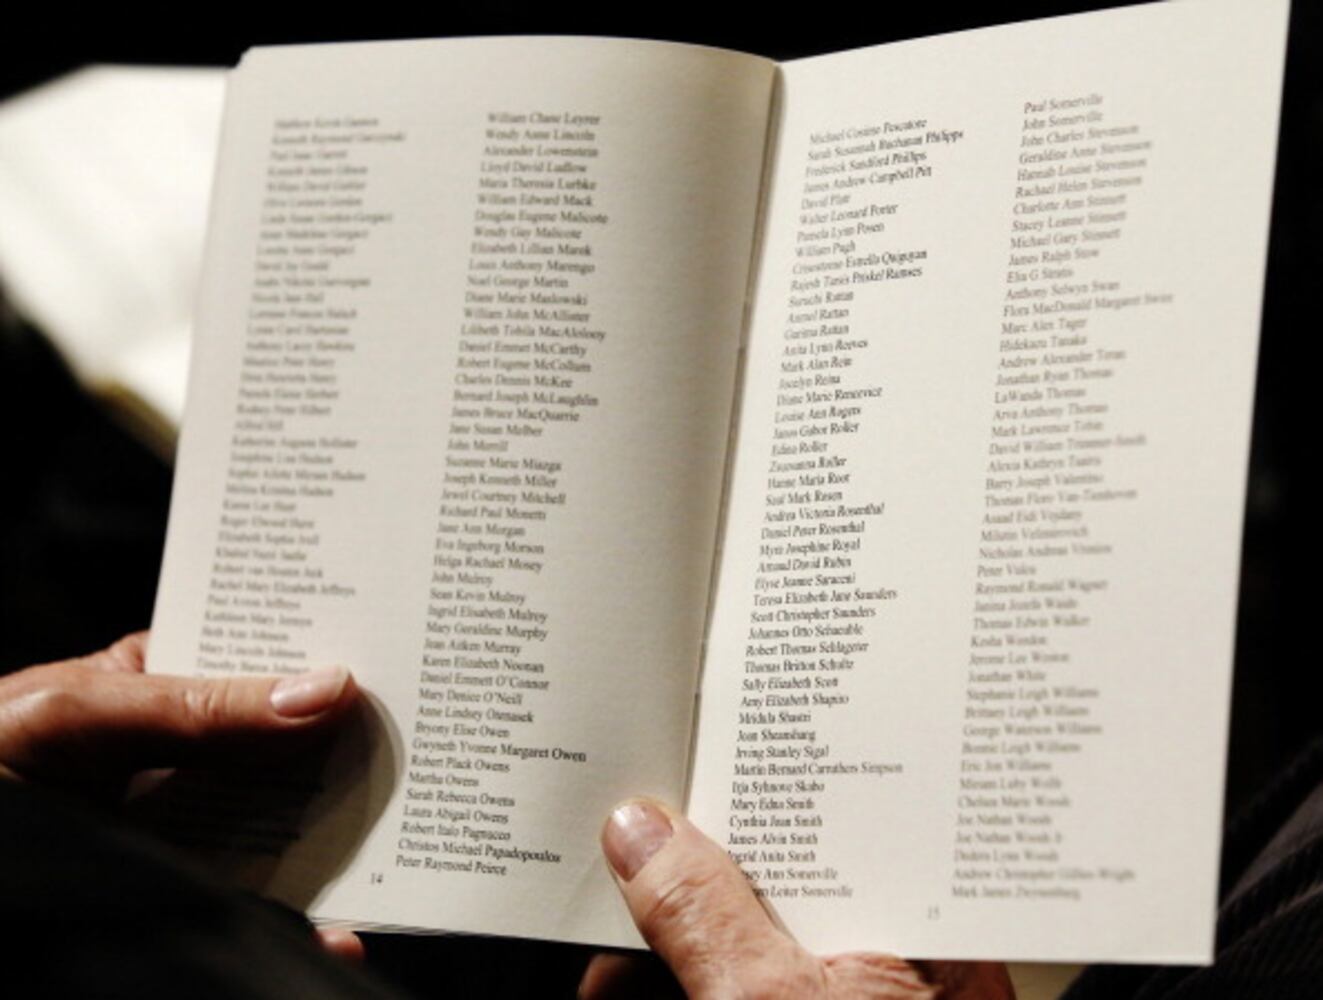 Matthew Kevin Gannon
Kenneth Raymond Garczynski
Paul Isaac Garrett
Kenneth James Gibson
William David
Olive Leonora Gordon
Linda Susan Gordon-Gorgacz
Anne Madelene Gorgacz
Loretta Anne Gorgacz
David Jay Gould
Andre Nikolai Guevorgian
Nicola Jane Hall
Lorraine Frances Halsch
Lynne Carol Hartunian
Anthony Lacey Hawkins
Maurice Peter Henry
Dora Henrietta Henry
Pamela Elaine Herbert
Rodney Peter Hilbert
Alfred Hill
Katherine Augusta Hollister
Josephine Lisa Hudson
Sophie Ailette Miriam Hudson
Melina Kristina Hudson
Karen Lee Hunt
Roger Elwood Hurst
Elizabeth Sophie Ivell
Khaled Nazir Jaafar
Robert van Houten Jeck
Rachel Mary Elizabeth Jeffreys
Paul Avron Jeffreys
Kathleen Mary Jermyn
Beth Ann Johnson
Mary Lincoln Johnson
Timothy Baron Johnson
William Chase Leyrer
Wendy Anne Lincoln
Alexander Lowenstein
Lloyd David Ludlow
Maria Theresia Lurbke
William Edward Mack
Douglas Eugene Malicote
Wendy Gay Malicote
Elizabeth Lillian Marek
Louis Anthony Marengo
Noel George Martin
Diane Marie Maslowski
William John McAllister
Lilibeth Tobila MacAlolooy
Daniel Emmet McCarthy
Robert Eugene McCollum
Charles Dennis McKee
Bernard Joseph McLaughlin
James Bruce MacQuarrie
Jane Susan Melber
John Merrill
Suzanne Marie Miazga
Joseph Kenneth Miller
Jewel Courtney Mitchell
Richard Paul Monetti
Jane Ann Morgan
Eva Ingeborg Morson
Helga Rachael Mosey
John Mulroy
Sean Kevin Mulroy
Ingrid Elisabeth Mulroy
Mary Geraldine Murphy
Jean Aitken Murray
Karen Elizabeth Noonan
Daniel Emmett O'Connor
Mary Denice O'Neill
Anne Lindsey Otenasek
Bryony Elise Owen
Gwyneth Yvonne Margaret Owen
Robert Plack Owens
Martha Owens
Sarah Rebecca Owens
Laura Abigail Owens
Robert Italo Pagnucco
Christos Michael Papadopoulos
Peter Raymond Peirce
14
Michael Cosimo Pescatore
Sarah Susannah Buchanan Philipps
Frederick Sandford Phillips
James Andrew Campbell Pitt
David Platt
Walter Leonard Porter
Pamela Lynn Posen
William Pugh
Crisostomo Estrella Quiguyan
Rajesh Tarsis Priskel Ramses
Suruchi Rattan
Anmol Rattan
Garima Rattan
Anita Lynn Reeves
Mark Alan Rein
Jocelyn Reina
Diane Marie Rencevicz
Louise Ann Rogers
Janos Gabor Roller
Edina Roller
Zsuzsanna Roller
Hanne Maria Root
Saul Mark Rosen
Andrea Victoria Rosenthal
Daniel Peter Rosenthal
Myra Josephine Royal
Arnaud David Rubin
Elyse Jeanne Saraceni
Teresa Elizabeth Jane Saunders
Scott Christopher Saunders
Johannes Otto Schaeuble
Robert Thomas Schlageter
Thomas Britton Schultz
Sally Elizabeth Scott
Amy Elizabeth Shapiro
Mridula Shastri
Joan Sheanshang
Irving Stanley Sigal
Martin Bernard Carruthers Simpson
Irja Syhnove Skabo
Mary Edna Smith
Cynthia Joan Smith
James Alvin Smith
Ingrid Anita Smith
sey Ann Somerville
Leiter Somerville
Paul Somerville
John Somerville
John Charles Stevenson
Geraldine Anne Stevenson
Hannah Louise Stevenson
Rachael Helen Stevenson
Charlotte Ann Stinnett
Stacey Leanne Stinnett
Michael Gary Stinnett
James Ralph Stow
Elia G Stratis
Anthony Selwyn Swan
Flora MacDonald Margaret Swire
Marc Alex Tager
Hidekazu Tanaka
Andrew Alexander Teran
Jonathan Ryan Thomas
LaWanda Thomas
Arva Anthony Thomas
Mark Lawrence Tobin
David William Trimmer-Smith
Alexia Kathryn Tsairis
Barry Joseph Valentino
Thomas Floro Van-Tienhoven
Asaad Eidi Vejdany
Milutin Velimirovich
Nicholas Andreas Vrenios
Peter Vulcu
Raymond Ronald Wagner
Janina Jozefa Waido
Thomas Edwin Walker
Kesha Weedon
Jerome Lee Weston
Jonathan White
Stephanie Leigh Williams
Brittany Leigh Williams
George Waterson Williams
Bonnie Leigh Williams
Eric Jon Williams
Miriam Luby Wolfe
Chelsea Marie Woods
Joe Nathan Woods
Joe Nathan Woods Jr
Dedera Lynn Woods
Andrew Christopher Gillies-Wright
Mark James Zwynenburg
15